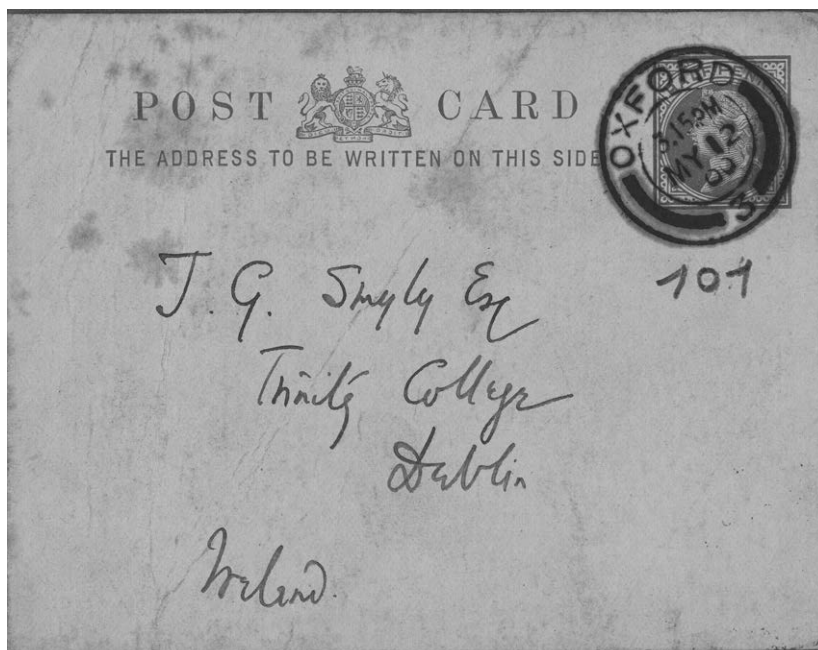 POST CARD
THE ADDRESS TO BE WRITTEN ON THIS SIDE
OXFORD
3.15PM
MY 12
00
3
101
J. G. Smyly Esq
Trinity College
Dublin
Ireland.